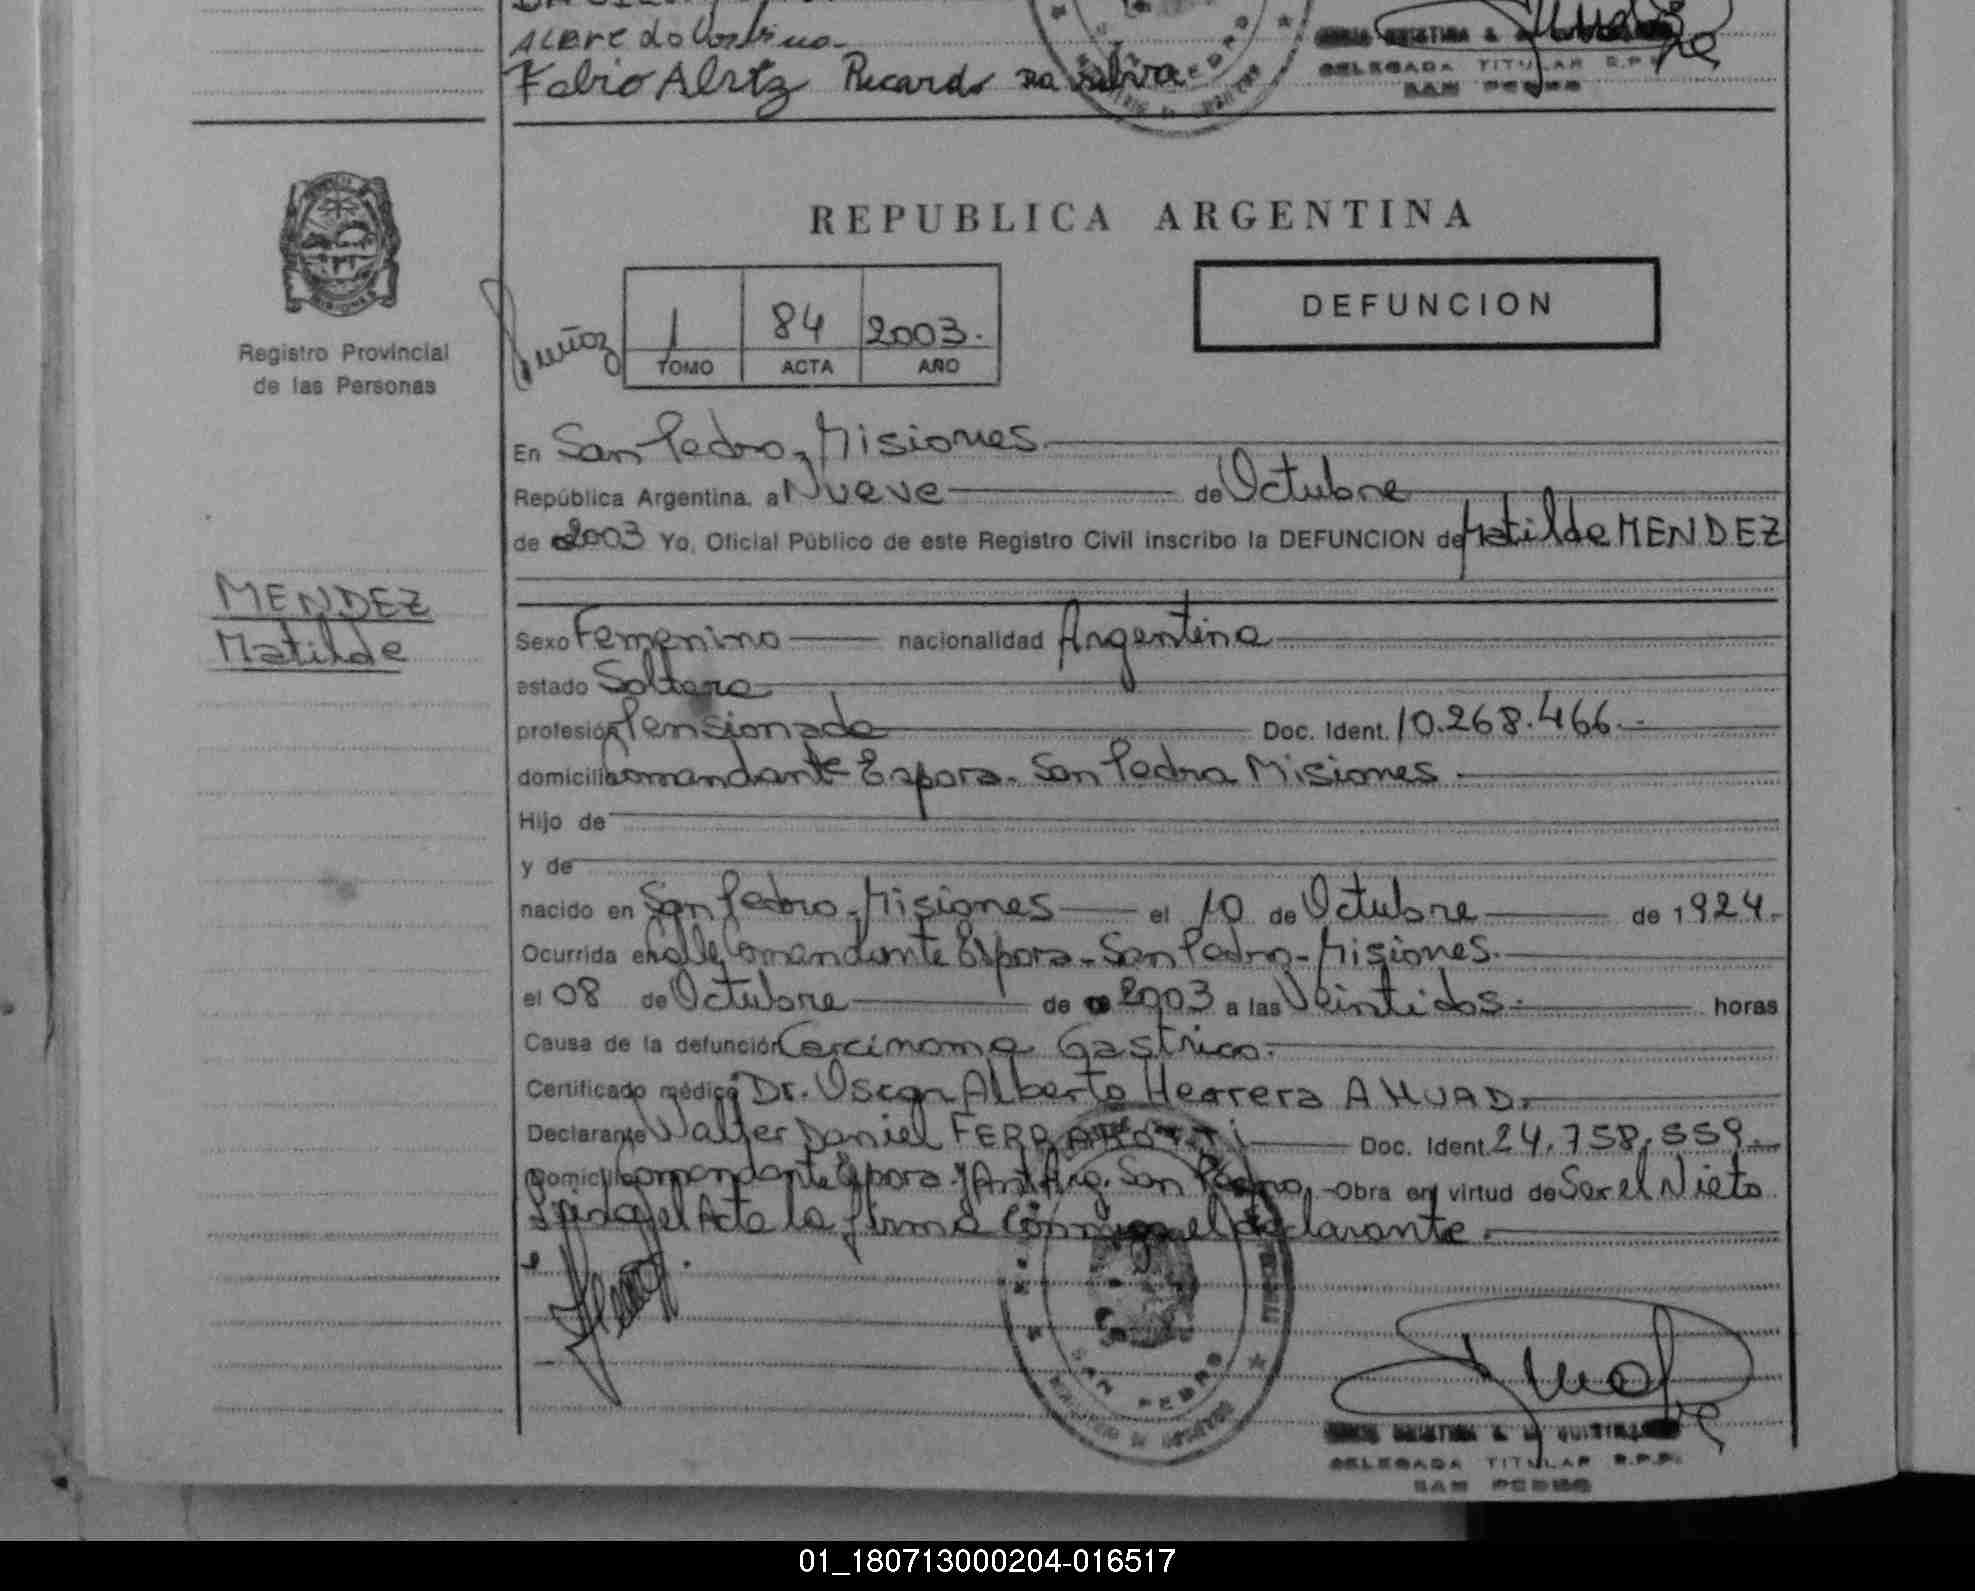 Fabio Alriz Ricardo Da Silva
DELEGADA TITULAR R.P.P.
SAN PEDRO
REPUBLICA ARGENTINA
DEFUNCION
Registro Provincial
de las Personas
Muñoz
1 84 2003.
TOMO ACTA AÑO
En San Pedro, Misiones
República Argentina, a Nueve de Octubre
de 2003 Yo, Oficial Público de este Registro Civil inscribo la DEFUNCION de Matilde MENDEZ
MENDEZ
Matilde
Sexo Femenino nacionalidad Argentina
estado Soltera
profesión Pensionada Doc. Ident. 10.268.466.-
domicilio Comandante Espora - San Pedro Misiones
Hijo de
y de
nacido en San Pedro, Misiones el 10 de Octubre de 1924.
Ocurrida en Calle Comandante Espora - San Pedro - Misiones.
el 08 de Octubre de 2003 a las Veintidos. horas
Causa de la defunción Carcinoma Gastrico.
Certificado médico Dr. Oscar Alberto Herrera AHUAD.
Declarante Walter Daniel FERRAROTTI Doc. Ident. 24.758.559.
Domicilio Comandante Espora y Ant. Arg. San Pedro, -Obra en virtud de Ser el Nieto
Leida el Acta la firma conmigo el declarante.
SAN PEDRO
DELEGADA TITULAR R.P.P.
SAN PEDRO
01_180713000204-016517